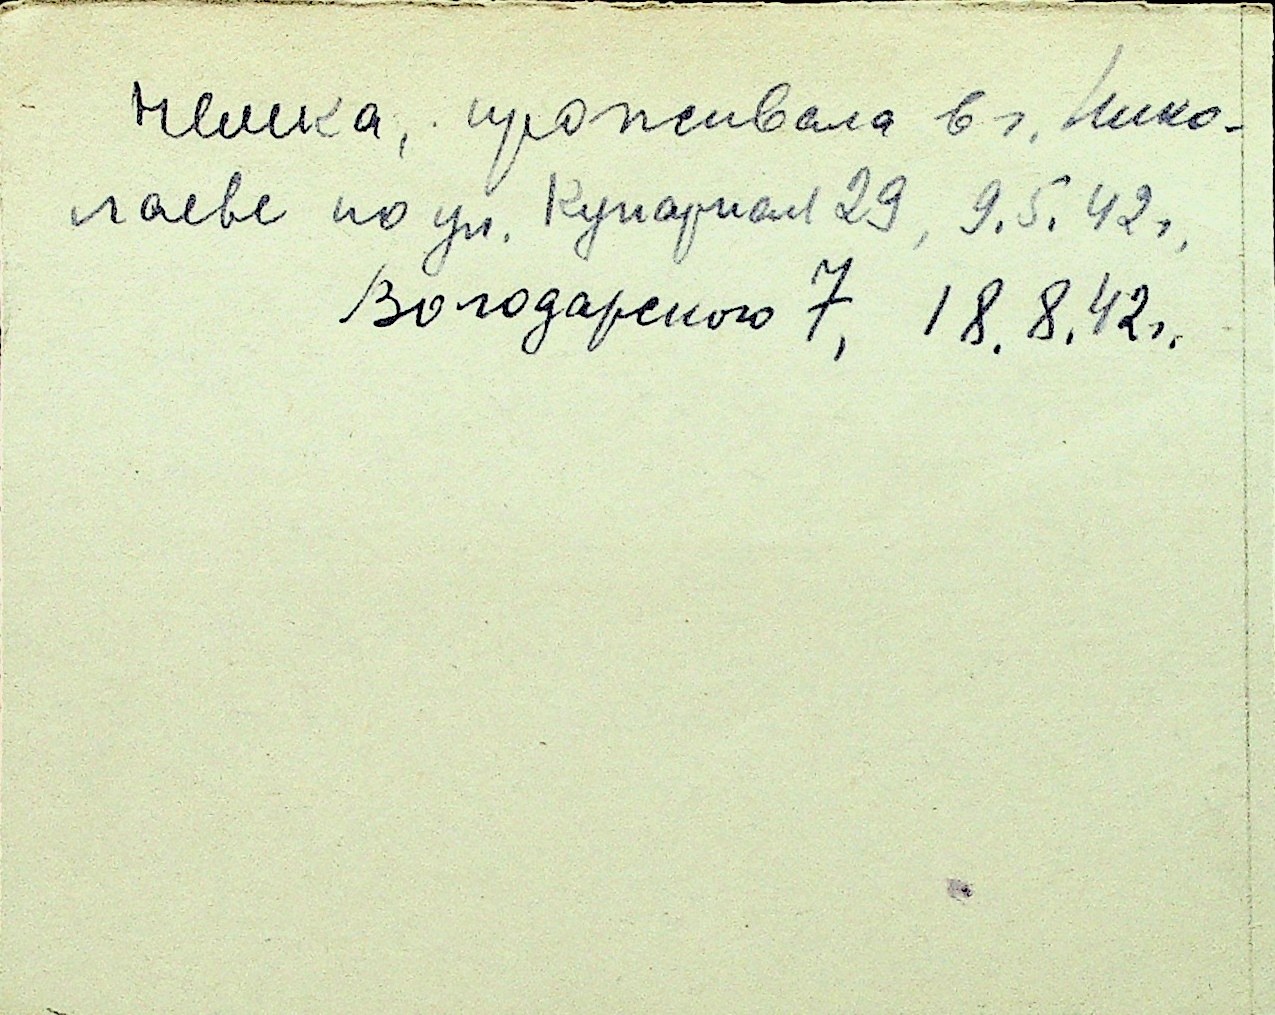 Немка, проживала в г. Нико-
лаеве по ул. Купарная 29, 9.5.42г,
Володарского 7, 18.8.42г.